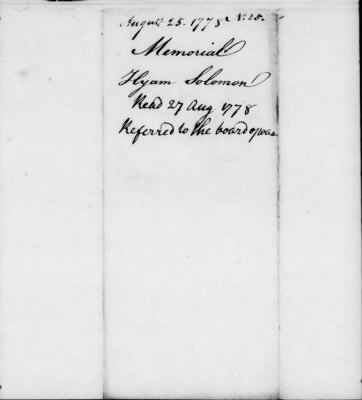 August 25. 1778 No. 25.
Memorial
Hyam Solomon
Read 27 Aug 1778
Referred to the board of war